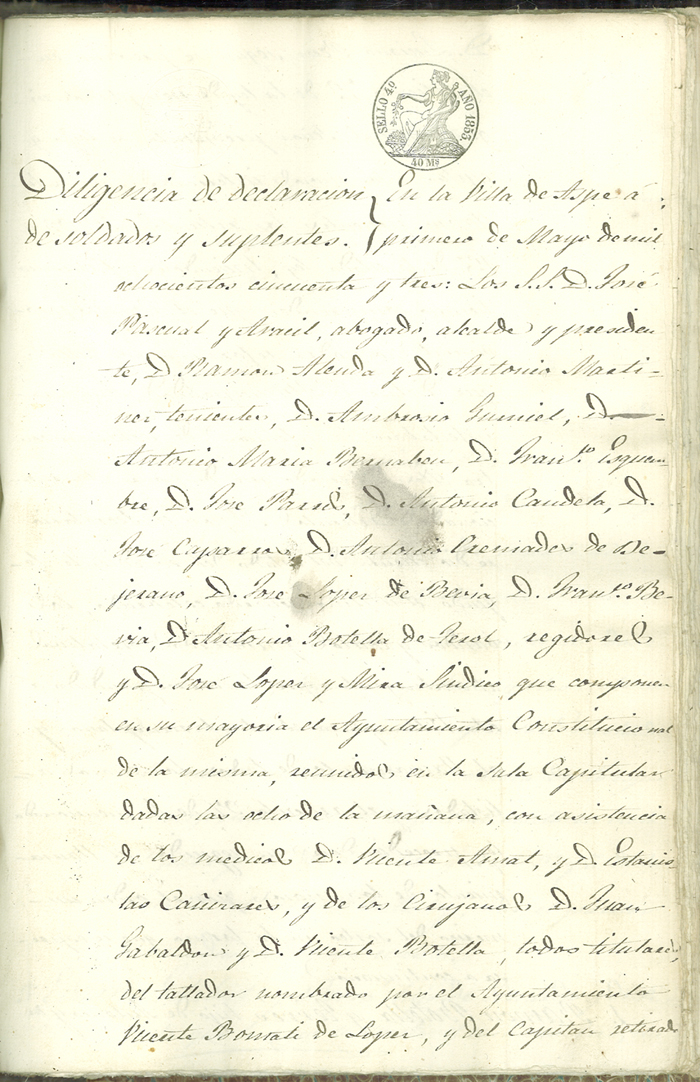 SELLO 4º AÑO 1853.
40 Ms
Diligencia de declaracion } En la Villa de Aspe á
de soldados y suplentes. } primero de Mayo de mil
ochocientos cincuenta y tres: Los S.S. D. José
Pascual y Aracil, abogado, alcalde y presiden
te, D Ramon Alenda y D. Antonio Marti-
nez, tenientes, D. Ambrosio Gumiel, D.
Antonio Maria Bernabeu, D. Fran.co Esquem-
bre, D. José Parrés, D. Antonio Candela, D.
José Caparros, D. Antonio Cremades de Be-
jerano, D. José Lopez de Bevia, D. Fran.co Be-
via, D Antonio Botella de Terol, regidores
y D. José Lopez y Mira Sindico que componen
en su mayoria el Ayuntamiento Constitucional
de la misma, reunidos en la Sala Capitular
dadas las ocho de la mañana, con asistencia
de los medicos D. Vicente Amat, y D. Estanis-
lao Cañizares, y de los Cirujanos D. Juan
Gabaldon y D. Vicente Botella, todos titulares,
del tallador nombrado por el Ayuntamiento
Vicente de Lopez, y del Capitan retirado